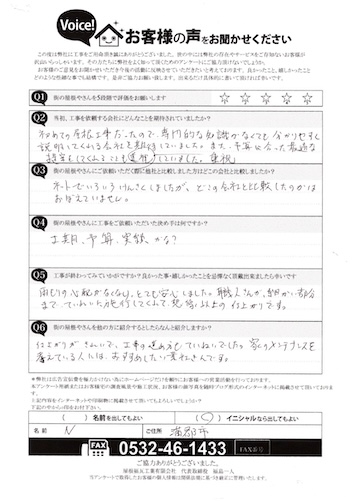 Voice!
お客様の声をお聞かせください
Q1 街の屋根やさんを5段階で評価をお願いします ☆ ☆ ☆ ☆ ☆
Q2 当初、工事を依頼する会社にどんなことを期待されていましたか?
初めての屋根工事だったので、専門的な知識がなくても分かりやすく
説明してくれる会社を期待していました。また、予算に合った最適な
提案をしてくれることも
Q3 街の屋根やさんにご依頼いただく際に他社と比較しました方はどこの会社と比較しましたか?
ネットでいろいろけんさくしましたが、どこの会社と比較したのかは
おぼえていません。
Q4 街の屋根やさんに工事をご依頼いただいた決め手は何ですか?
工期、予算、実績、かな?
Q5 工事が終わってみていかがですか?良かった事・嬉しかったことを忌憚なく頂戴出来ましたら幸いです
雨もりの心配がなくなり、とても安心しました。職人さんが、細かい部分
まで、ていねいに施行してくれて、想像以上の仕上がりです。
Q6 街の屋根やさんを他の方に紹介するとしたらなんと紹介しますか?
仕上がりがきれいで、工事の進め方もていねいでした。家のメンテナンスを
考えている人には、おすすめしたい業社さんです。
( )名前を出してもよい (○)イニシャルなら出してもよい
名前 N ご住所 蒲郡市
FAX 0532-46-1433 FAX番号
ご協力ありがとうございました。
屋根福瓦工業有限会社 代表取締役 福島一人